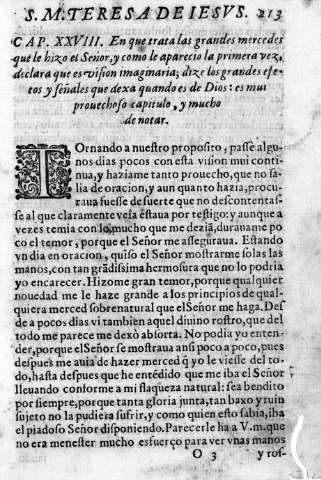 S. M. TERESA DE IESVS. 213
CAP. XXVIII. En que trata las grandes mercedes
que le hizo el Señor, y como le aparecio la primera vez,
declara que es vision imaginaria; dize los grandes efe-
tos y señales que dexa quando es de Dios: es mui
prouechoso capitulo, y mucho
de notar.
TOrnando a nuestro proposito, passè algu-
nos dias pocos con esta vision mui conti-
nua, y haziame tanto prouecho, que no sa-
lia de oracion, y aun quanto hazia, procu-
raua fuesse de suerte que no descontentas-
se al que claramente veia estaua por testigo: y aunque a
vezes temia con lo mucho que me dezià, durauame po
co el temor, porque el Señor me asseguraua. Estando
vn dia en oracion, quiso el Señor mostrarme solas las
manos, con tan grãdissima hermosura que no lo podria
yo encarecer. Hizome gran temor, porque qualquier
nouedad me le haze grande a los principios de qual-
quiera merced sobrenatural que el Señor me haga. Des
de a pocos dias vi tambien aquel diuino rostro, que del
todo me parece me dexò absorta. No podia yo enten-
der, porque el Señor se mostraua ansi poco a poco, pues
despues me auia de hazer merced q̃ yo le viesse del to-
do, hasta despues que he entẽdido que me iba el Señor
lleuando conforme a mi flaqueza natural: sea bendito
por siempre, porque tanta gloria junta, tan baxo y ruin
sujeto no la pudiera sufrir, y como quien esto sabia, iba
el piadoso Señor disponiendo. Parecerle ha a V.m. que
no era menester mucho esfuerço para ver vnas manos
O 3 y ros-